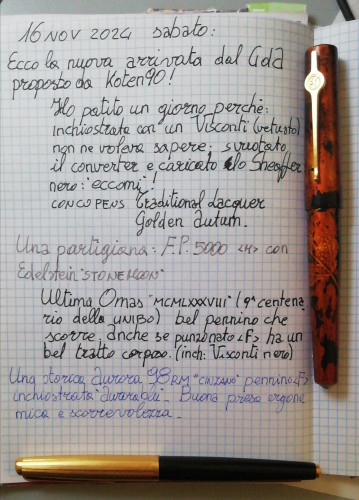 16 NOV 2024 sabato:
Ecco la nuova arrivata dal GdA
proposto da Koten90!
Ho patito un giorno perché:
inchiostrata con un Visconti (vetusto)
non ne voleva sapere; svuotato
il converter e caricato lo Sheaffer
nero: "eccomi"!
CONCOPENS Traditional Lacquer
Golden autum.
Una partigiana: F.P. 5000 <M> con
Edelstein "STONEMOON"
Ultima Omas "MCMLXXXVIII" (9° centena
rio della UNIBO) bel pennino che
scorre, anche se punzonato <F> ha un
bel tratto corposo. (inch: Visconti nero)
Una storica Aurora 98 RM "CINZANO" pennino <F>
inchiostrata "durabili". Buona presa ergono
mica e scorrevolezza.